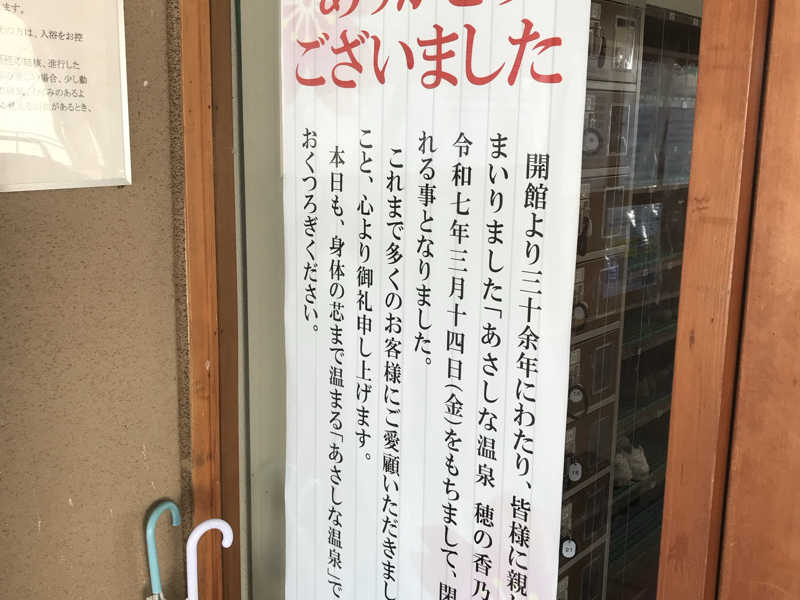 ございました
開館より三十余年にわたり、皆様に親し
まいりました「あさしな温泉 穂の香乃
令和七年三月十四日(金)をもちまして、閉
れる事となりました。
これまで多くのお客様にご愛顧いただきまし
こと、心より御礼申し上げます。
本日も、身体の芯まで温まる「あさしな温泉」で
おくつろぎください。
ます。
の方は、入浴をお控
進行した
場合、少し動
みのあるよ
があるとき、